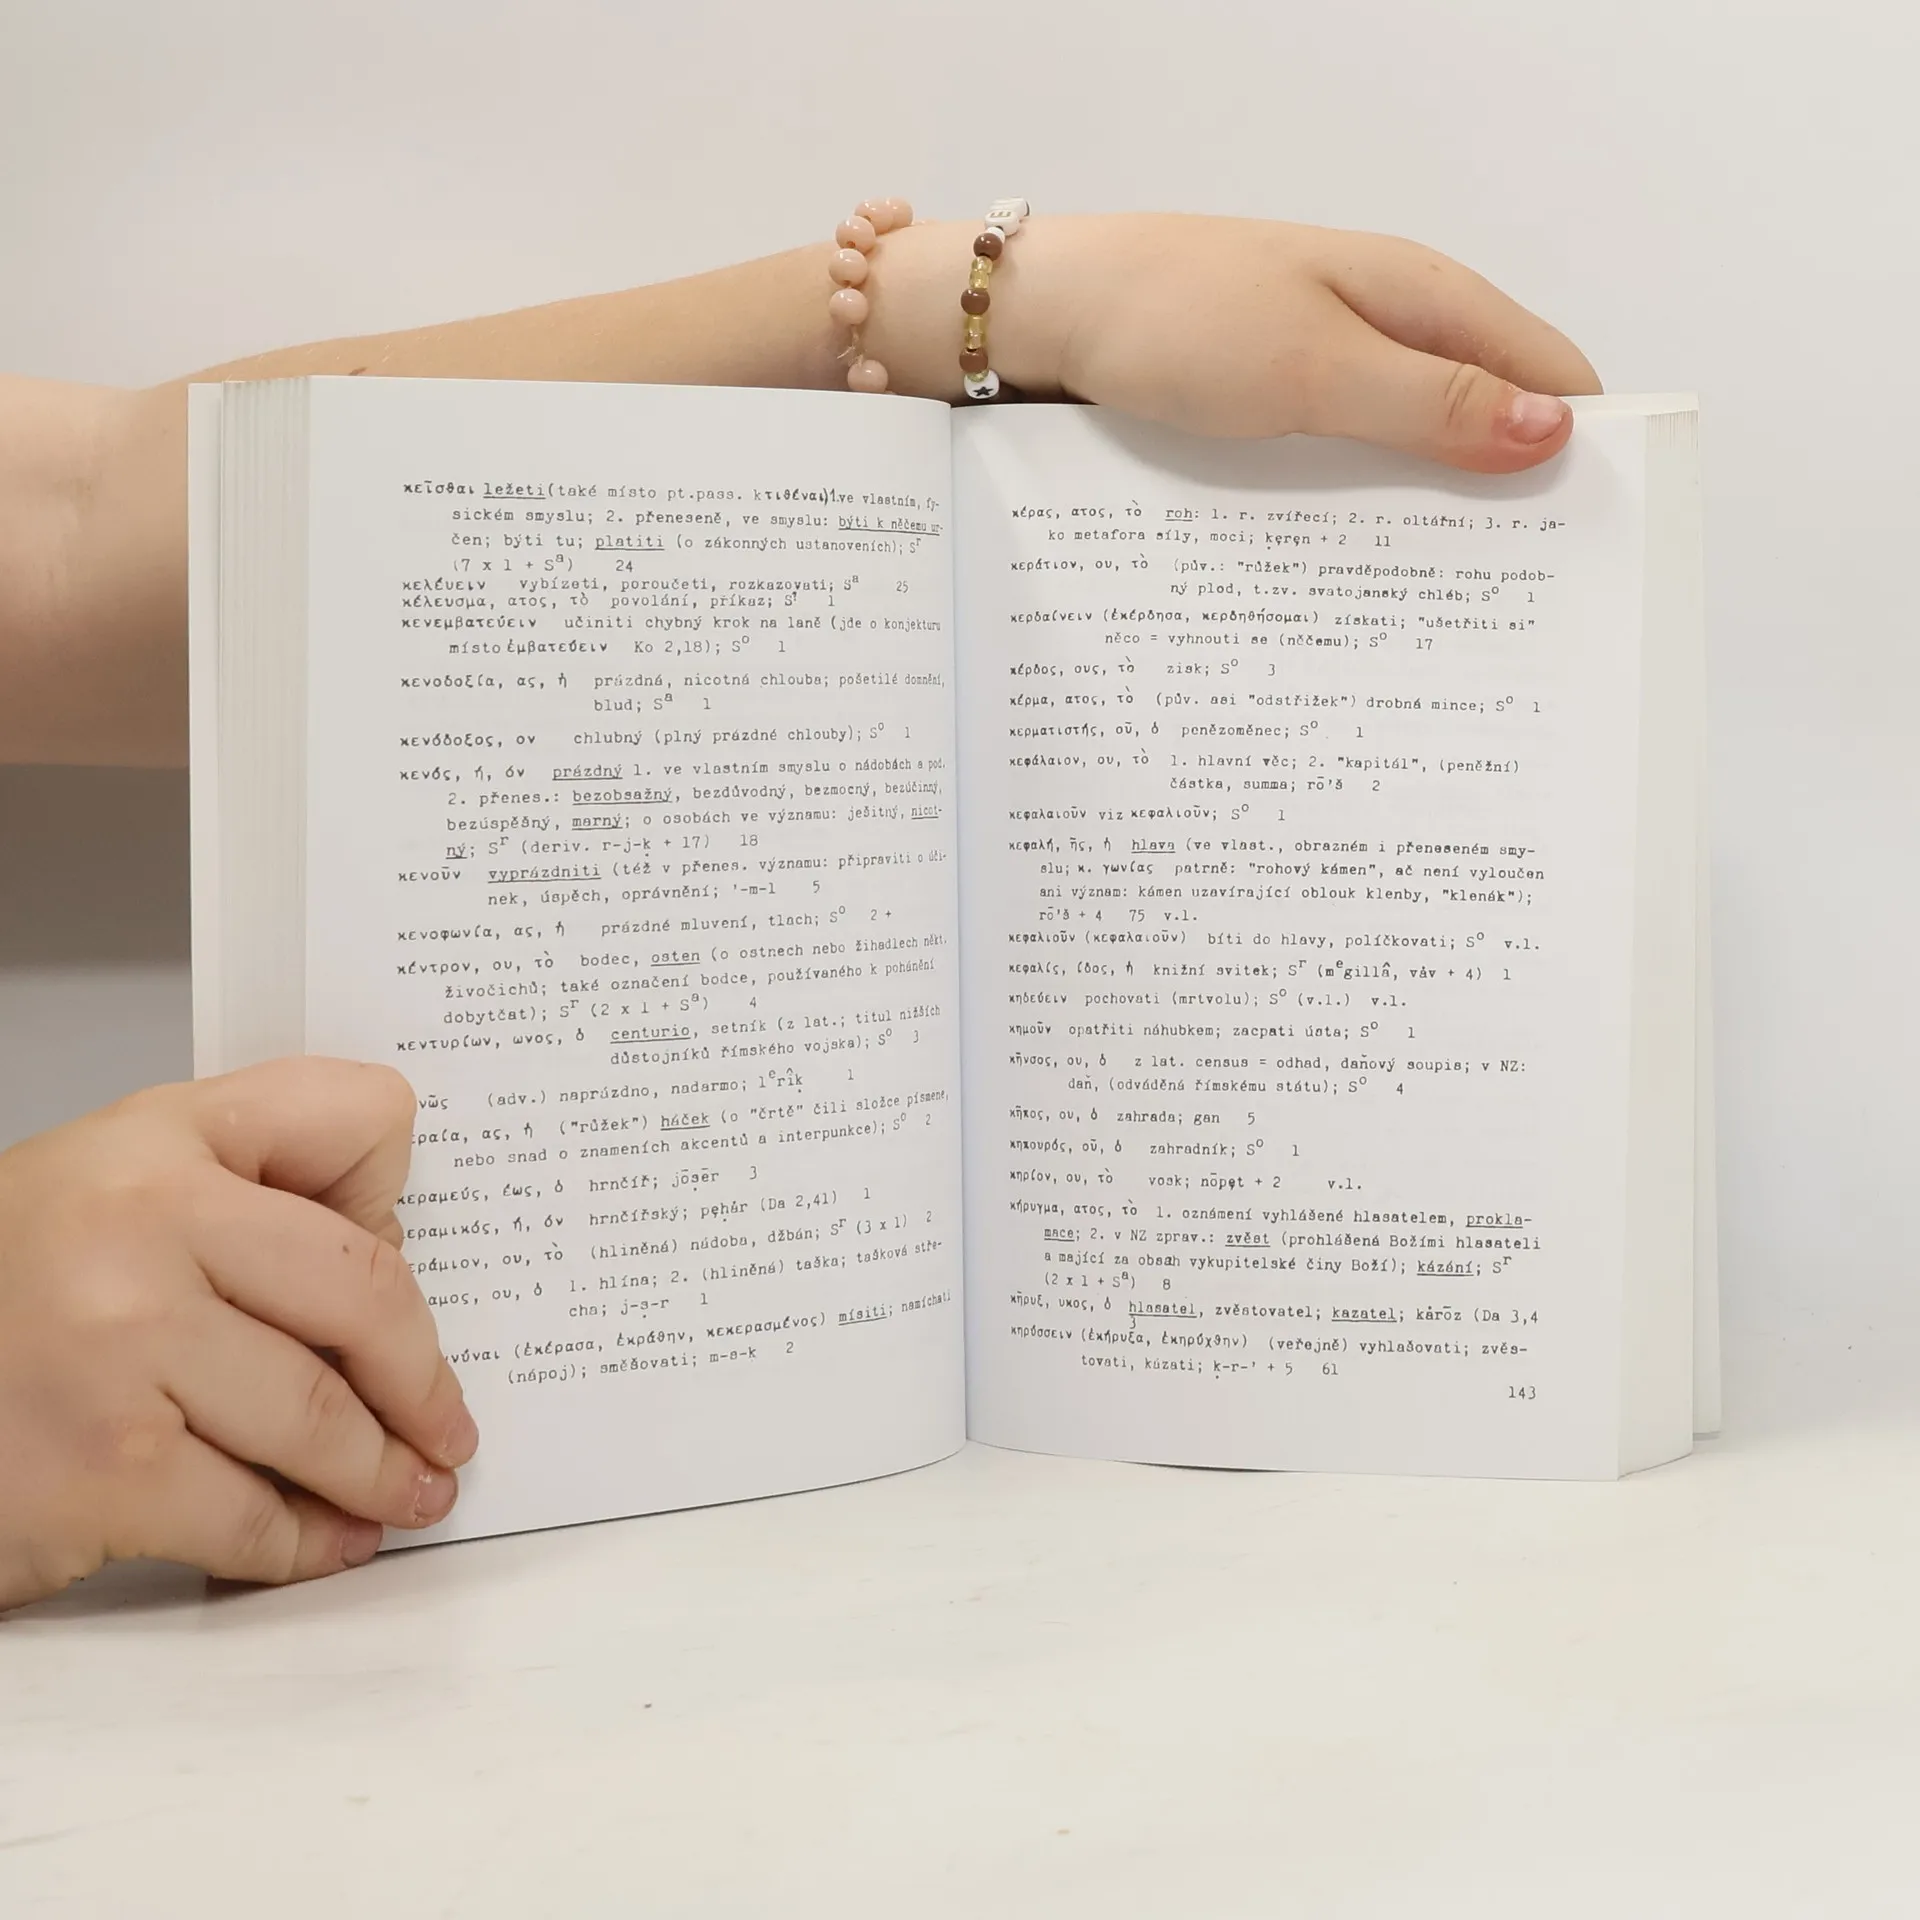 κεῖσθαι ležeti(také místo pt.pass. k τιθέναι)1.ve vlastním, fy-
sickém smyslu; 2. přeneseně, ve smyslu: býti k něčemu ur-
čen; býti tu; platiti (o zákonných ustanoveních); Sʳ
(7 x 1 + Sᵃ) 24
κελεύειν vybízeti, poroučeti, rozkazovati; Sᵃ 25
κέλευσμα, ατος, τὸ povolání, příkaz; Sʳ 1
κενεμβατεύειν učiniti chybný krok na laně (jde o konjekturu
místo ἐμβατεύειν Ko 2,18); Sᵒ 1
κενοδοξία, ας, ἡ prázdná, nicotná chlouba; pošetilé domnění,
blud; Sᵃ 1
κενόδοξος, ον chlubný (plný prázdné chlouby); Sᵒ 1
κενός, ή, όν prázdný 1. ve vlastním smyslu o nádobách a pod.
2. přenes.: bezobsažný, bezdůvodný, bezmocný, bezúčinný,
bezúspěšný, marný; o osobách ve významu: ješitný, nicot-
ný; Sʳ (deriv. r-j-ḳ + 17) 18
κενοῦν vyprázdniti (též v přenes. významu: připraviti o úči-
nek, úspěch, oprávnění; '-m-l 5
κενοφωνία, ας, ἡ prázdné mluvení, tlach; Sᵒ 2 +
κέντρον, ου, τὸ bodec, osten (o ostnech nebo žihadlech někt.
živočichů; také označení bodce, používaného k pohánění
dobytčat); Sʳ (2 x 1 + Sᵃ) 4
κεντυρίων, ωνος, ὁ centurio, setník (z lat.; titul nižších
důstojníků římského vojska); Sᵒ 3
νῶς (adv.) naprázdno, nadarmo; lᵉrîḳ 1
ραία, ας, ἡ ("růžek") háček (o "črtě" čili složce písmene,
nebo snad o znameních akcentů a interpunkce); Sᵒ 2
κεραμεύς, έως, ὁ hrnčíř; jōṣēr 3
εραμικός, ή, όν hrnčířský; pęḥár (Da 2,41) 1
εράμιον, ου, τὸ (hliněná) nádoba, džbán; Sʳ (3 x 1) 2
αμος, ου, ὁ 1. hlína; 2. (hliněná) taška; tašková stře-
cha; j-ṣ-r 1
ννύναι (ἐκέρασα, ἐκράθην, κεκερασμένος) mísiti; namíchati
(nápoj); směšovati; m-s-k 2
κέρας, ατος, τὸ roh: 1. r. zvířecí; 2. r. oltářní; 3. r. ja-
ko metafora síly, moci; ḳęręn + 2 11
κεράτιον, ου, τὸ (pův.: "růžek") pravděpodobně: rohu podob-
ný plod, t.zv. svatojanský chléb; Sᵒ 1
κερδαίνειν (ἐκέρδησα, κερδηθήσομαι) získati; "ušetřiti si"
něco = vyhnouti se (něčemu); Sᵒ 17
κέρδος, ους, τὸ zisk; Sᵒ 3
κέρμα, ατος, τὸ (pův. asi "odstřižek") drobná mince; Sᵒ 1
κερματιστής, οῦ, ὁ penězoměnec; Sᵒ 1
κεφάλαιον, ου, τὸ 1. hlavní věc; 2. "kapitál", (peněžní)
částka, summa; rō'š 2
κεφαλαιοῦν viz κεφαλιοῦν; Sᵒ 1
κεφαλή, ῆς, ἡ hlava (ve vlast., obrazném i přeneseném smy-
slu; κ. γωνίας patrně: "rohový kámen", ač není vyloučen
ani význam: kámen uzavírající oblouk klenby, "klenák");
rō'š + 4 75 v.l.
κεφαλιοῦν (κεφαλαιοῦν) bíti do hlavy, políčkovati; Sᵒ v.l.
κεφαλίς, ίδος, ἡ knižní svitek; Sʳ (mᵉgillâ, váv + 4) 1
κηδεύειν pochovati (mrtvolu); Sᵒ (v.l.) v.l.
κημοῦν opatřiti náhubkem; zacpati ústa; Sᵒ 1
κῆνσος, ου, ὁ z lat. census = odhad, daňový soupis; v NZ:
daň, (odváděná římskému státu); Sᵒ 4
κῆπος, ου, ὁ zahrada; gan 5
κηπουρός, οῦ, ὁ zahradník; Sᵒ 1
κηρίον, ου, τὸ vosk; nōpęt + 2 v.l.
κήρυγμα, ατος, τὸ 1. oznámení vyhlášené hlasatelem, prokla-
mace; 2. v NZ zprav.: zvěst (prohlášená Božími hlasateli
a mající za obsah vykupitelské činy Boží); kázání; Sʳ
(2 x 1 + Sᵃ) 8
κῆρυξ, υκος, ὁ hlasatel, zvěstovatel; kazatel; kårōz (Da 3,4
3
κηρύσσειν (ἐκήρυξα, ἐκηρύχθην) (veřejně) vyhlašovati; zvěs-
tovati, kázati; ḳ-r-' + 5 61
143